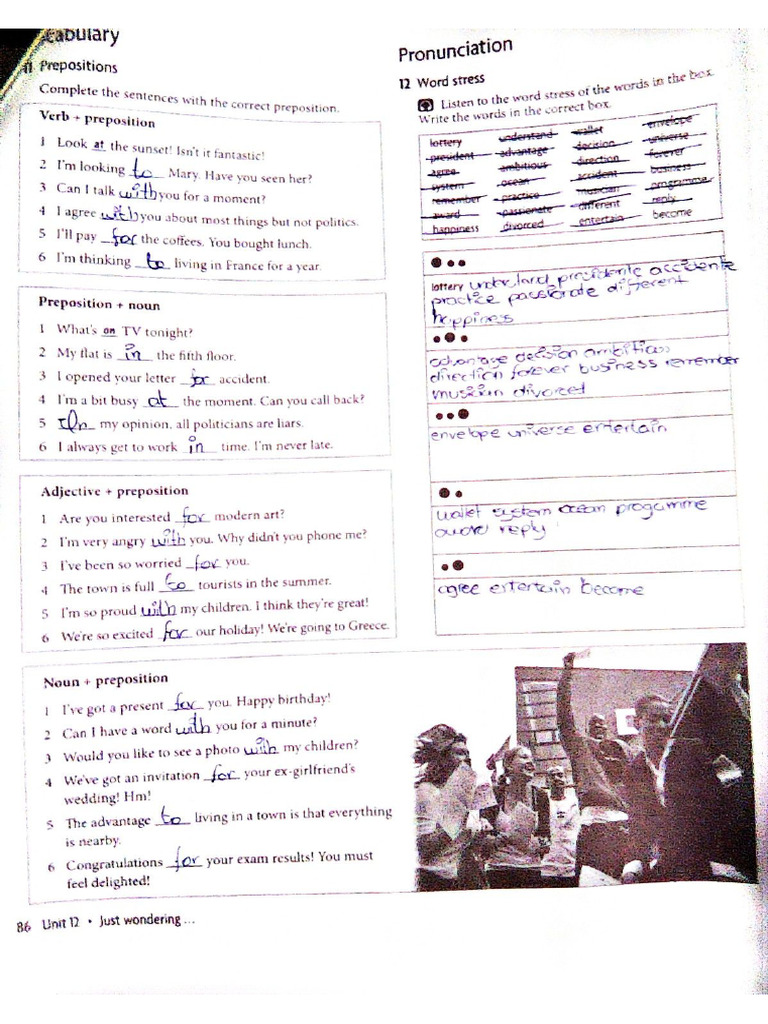 cabulary
11 Prepositions
Complete the sentences with the correct preposition.
Verb + preposition
1 Look at the sunset! Isn't it fantastic!
2 I'm looking to Mary. Have you seen her?
3 Can I talk with you for a moment?
4 I agree with you about most things but not politics.
5 I'll pay for the coffees. You bought lunch.
6 I'm thinking to living in France for a year.
Preposition + noun
1 What's on TV tonight?
2 My flat is in the fifth floor.
3 I opened your letter for accident.
4 I'm a bit busy at the moment. Can you call back?
5 In my opinion, all politicians are liars.
6 I always get to work in time. I'm never late.
Adjective + preposition
1 Are you interested for modern art?
2 I'm very angry with you. Why didn't you phone me?
3 I've been so worried for you.
4 The town is full to tourists in the summer.
5 I'm so proud with my children. I think they're great!
6 We're so excited for our holiday! We're going to Greece.
Noun + preposition
1 I've got a present for you. Happy birthday!
2 Can I have a word with you for a minute?
3 Would you like to see a photo with my children?
4 We've got an invitation for your ex-girlfriend's
wedding! Hm!
5 The advantage to living in a town is that everything
is nearby.
6 Congratulations for your exam results! You must
feel delighted!
86 Unit 12 • Just wondering ...
Pronunciation
12 Word stress
Listen to the word stress of the words in the box.
Write the words in the correct box.
lottery understand wallet envelope
president advantage decision universe
agree ambitious direction forever
system ocean accident business
remember practice musician programme
award passionate different reply
happiness divorced entertain become
lottery understand presidente accidente
practice passionate different
happiness
advantage decision ambitious
direction forever business remember
musician divorced
envelope universe entertain
wallet system ocean progamme
award reply
agree entertain become